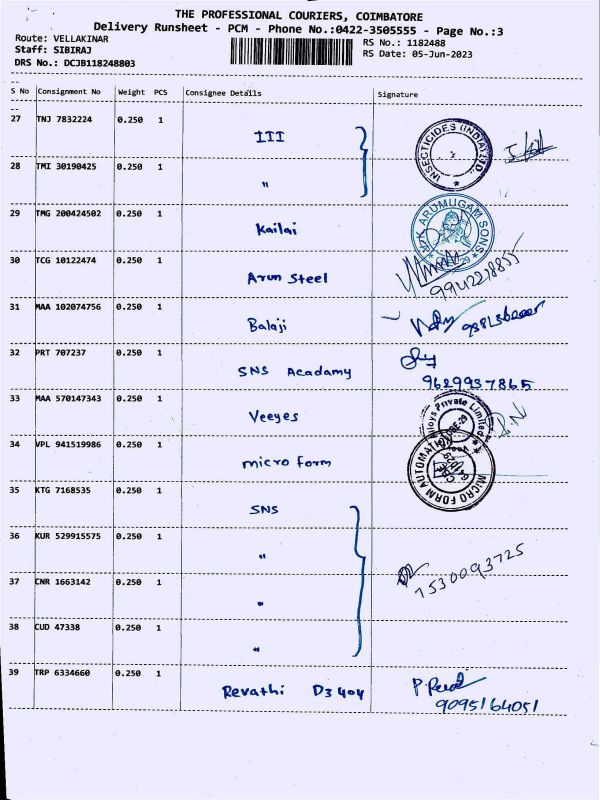 THE PROFESSIONAL COURIERS, COIMBATORE
Delivery Runsheet - PCM - Phone No.:0422-3505555 - Page No.:3
Route: VELLAKINAR
RS No.: 1182488
Staff: SIBIRAJ
RS Date: 05-Jun-2023
DRS No.: DCJB118248803
S No Consignment No Weight PCS Consignee Details Signature
27 TNJ 7832224 0.250 1 III
INSECTICIDES (INDIA) LTD.
28 TMI 30190425 0.250 1 "
29 TMG 200424502 0.250 1 Kailai
ARUMUGAM SONS
30 TCG 10122474 0.250 1 Arun Steel
9942218855
31 MAA 102074756 0.250 1 Balaji
32 PRT 707237 0.250 1 SNS Acadamy
9629937865
33 MAA 570147343 0.250 1 Veeyes
Private Limited
34 VPL 941519986 0.250 1 micro form
MICRO FORM AUTOMATION
35 KTG 7168535 0.250 1 SNS
36 KUR 529915575 0.250 1 "
7530093725
37 CNR 1663142 0.250 1 "
38 CUD 47338 0.250 1 "
39 TRP 6334660 0.250 1 Revathi D3 404
9095164051